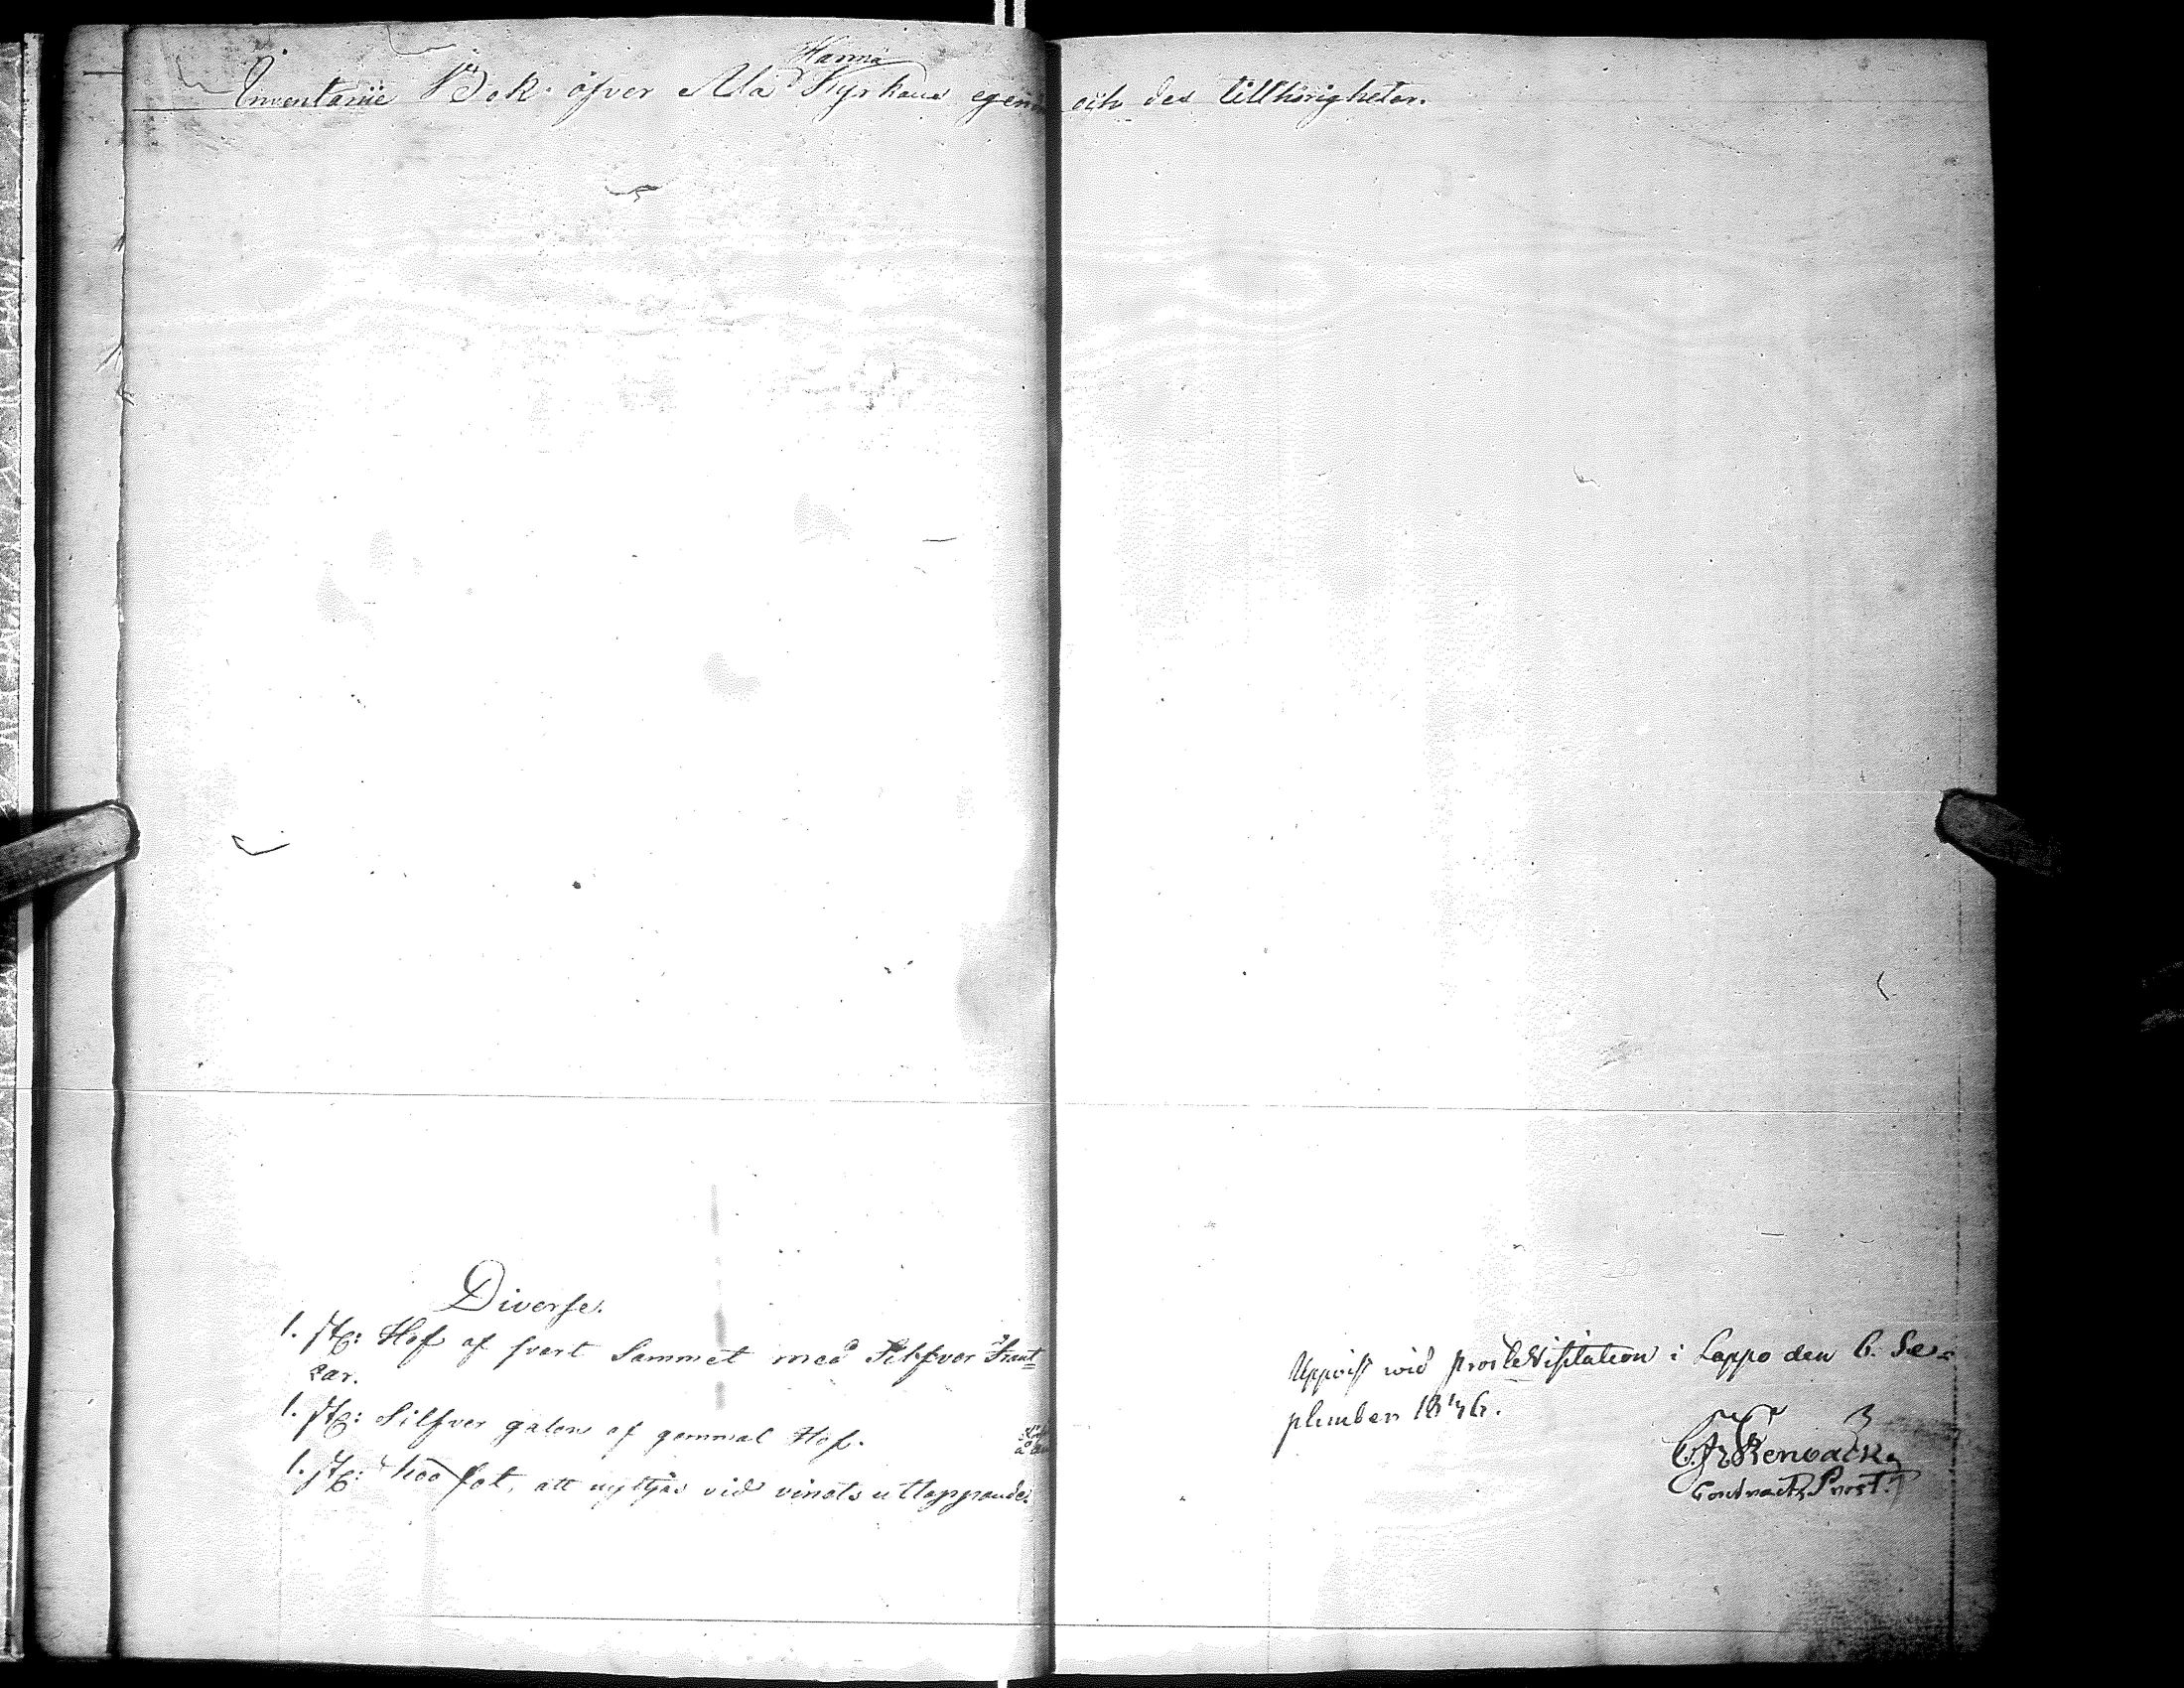 Hanna
Inventarie Bok öfver Ala Kyrkans egen och des tillhörigheter.
Diverse.
1. st: Hof af svart Sammet med Silfver Frant=
sar.
1. st: Silfver galon af gammal Hof.
1. st: fot, att nyttjas vid vinets uttappande.
Uppvist wid prosteVisitation i Lappo den 6. Se=
ptember 1846.
Contracts Prost.